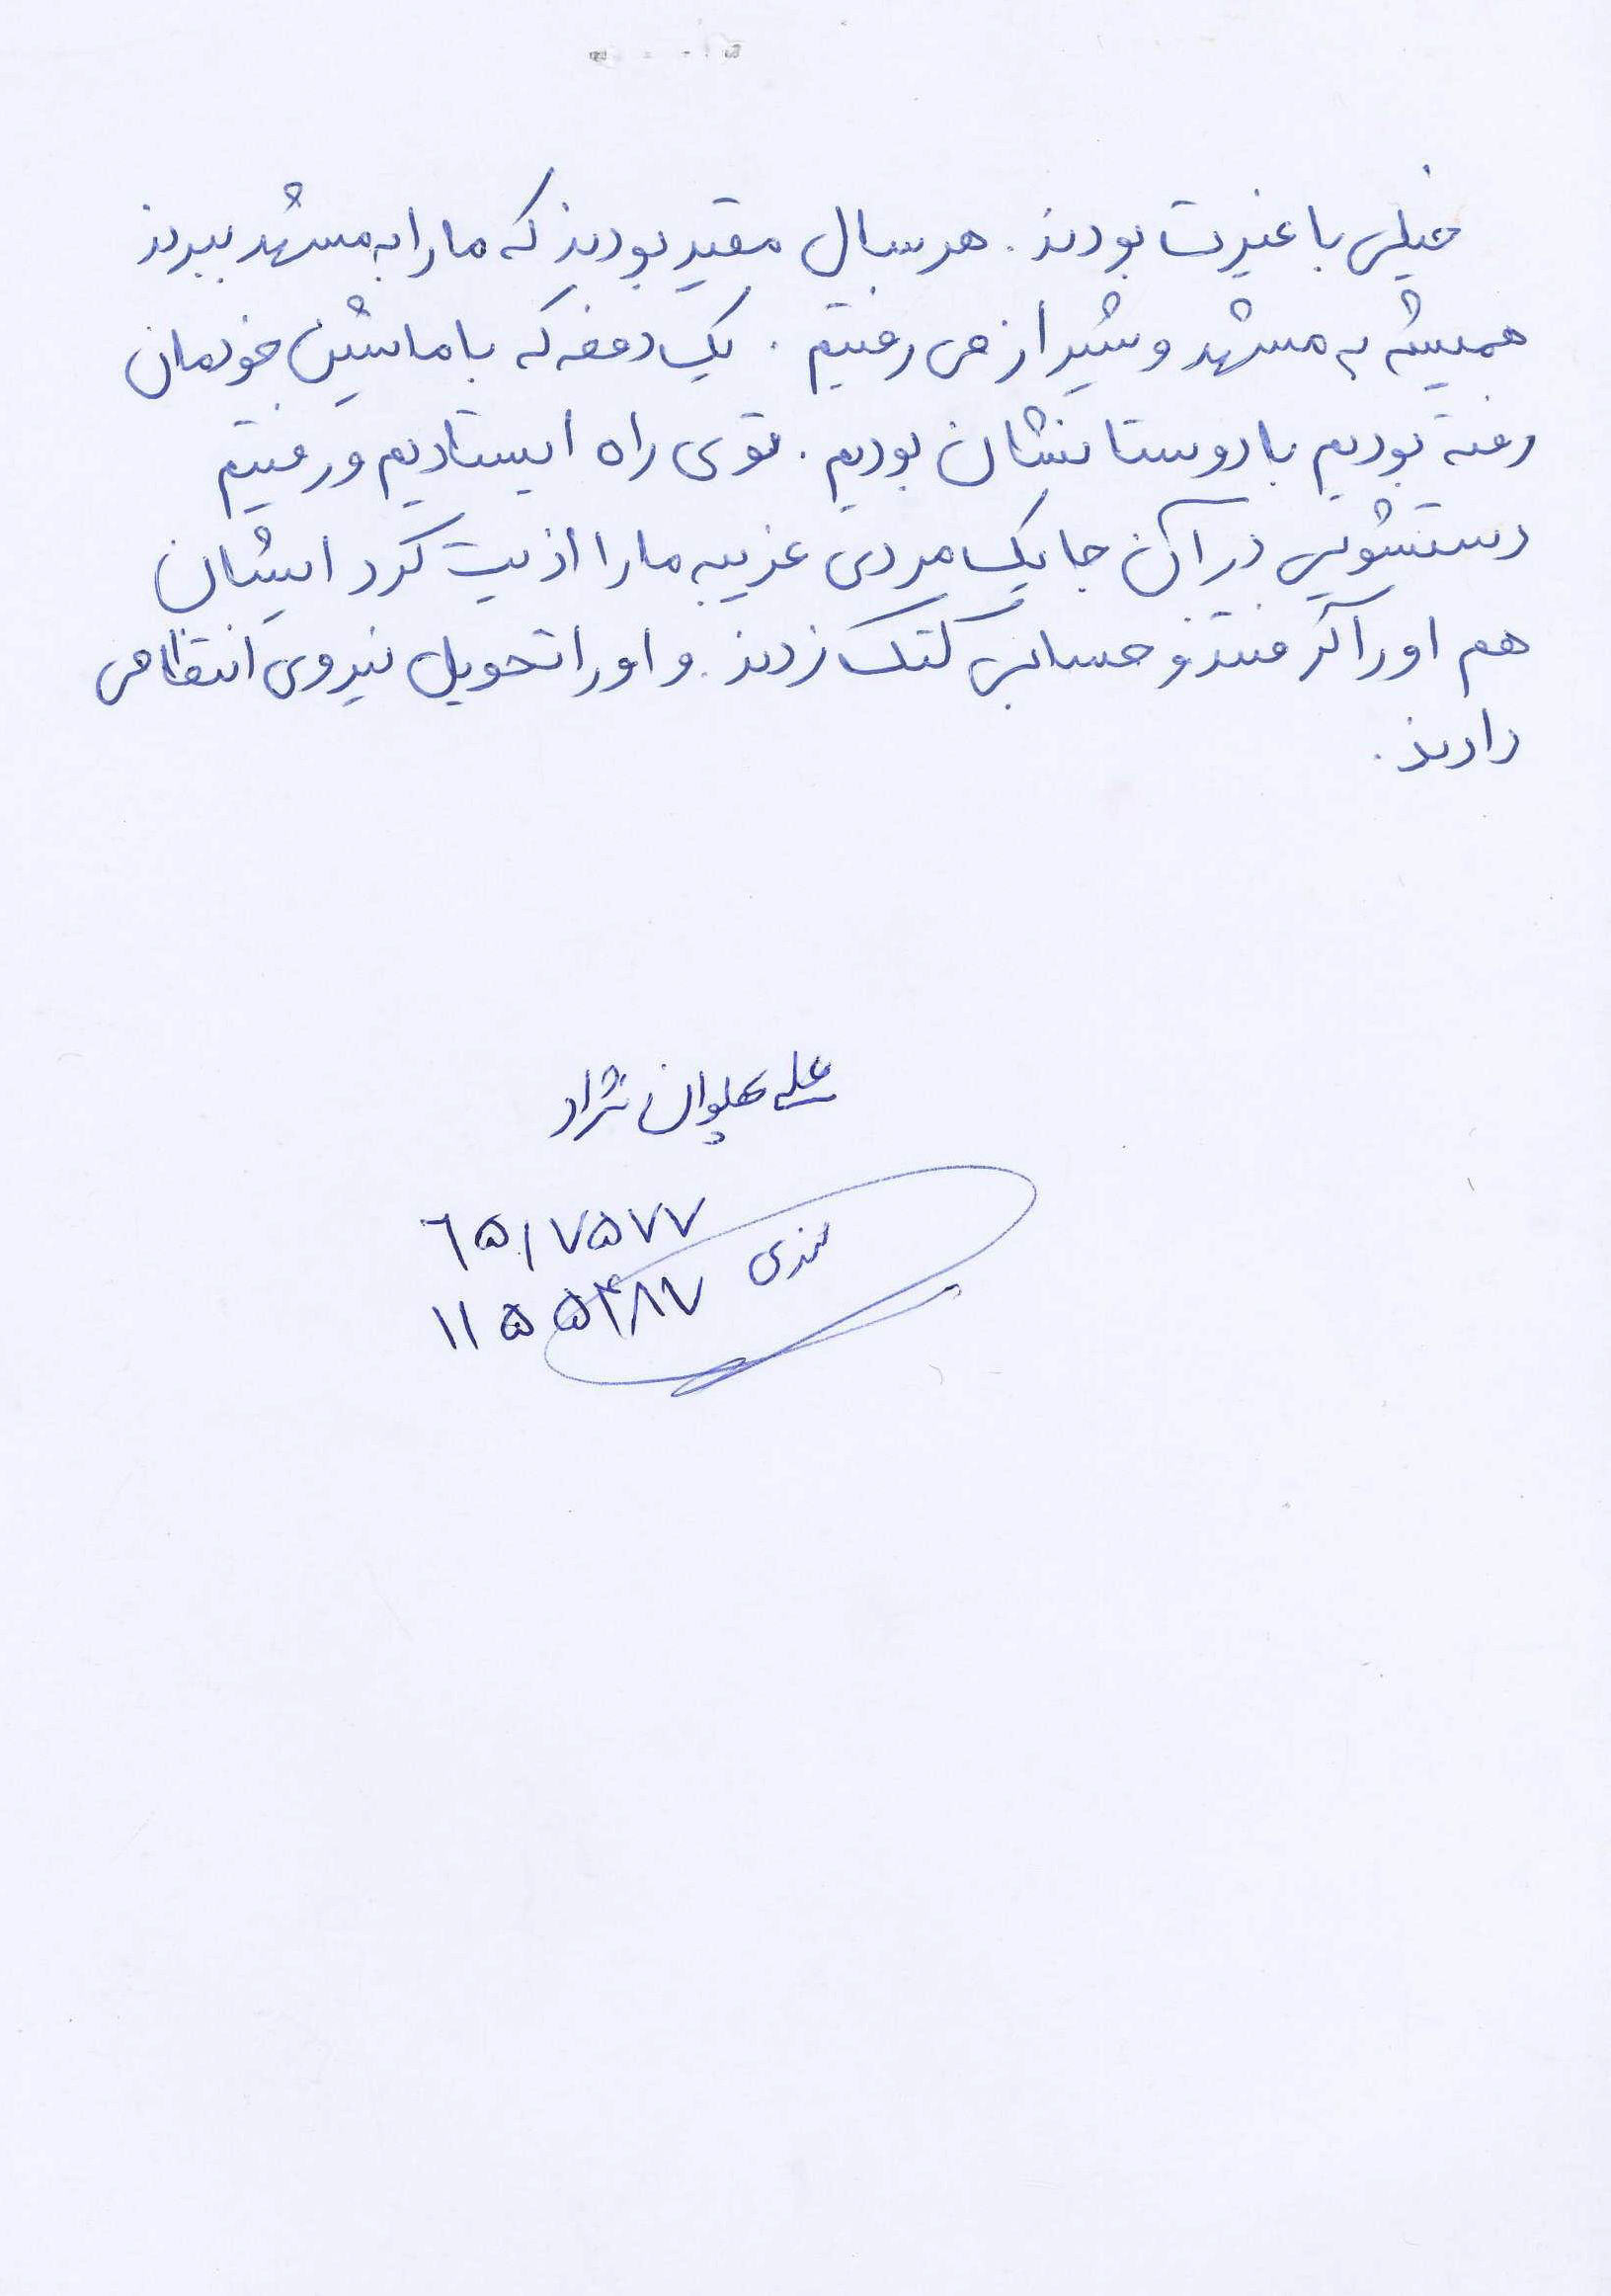 خیلی با غیرت بودند. هر سال مقید بودند که ما را به مشهد ببرند
همیشه به مشهد و شیراز می رفتیم. یک دفعه که با ماشین خودمان
رفته بودیم با دوستانشان بودیم. توی راه ایستادیم و رفتیم
دستشویی در آن جا یک مردی غریبه ما را اذیت کرد ایشان
هم او را گرفتند و حسابی کتک زدند. و او را تحویل نیروی انتظامی
دادند.
علی پهلوان نژاد
۶۵۱۷۵۷۷
۱۱۵۵۴۸۷